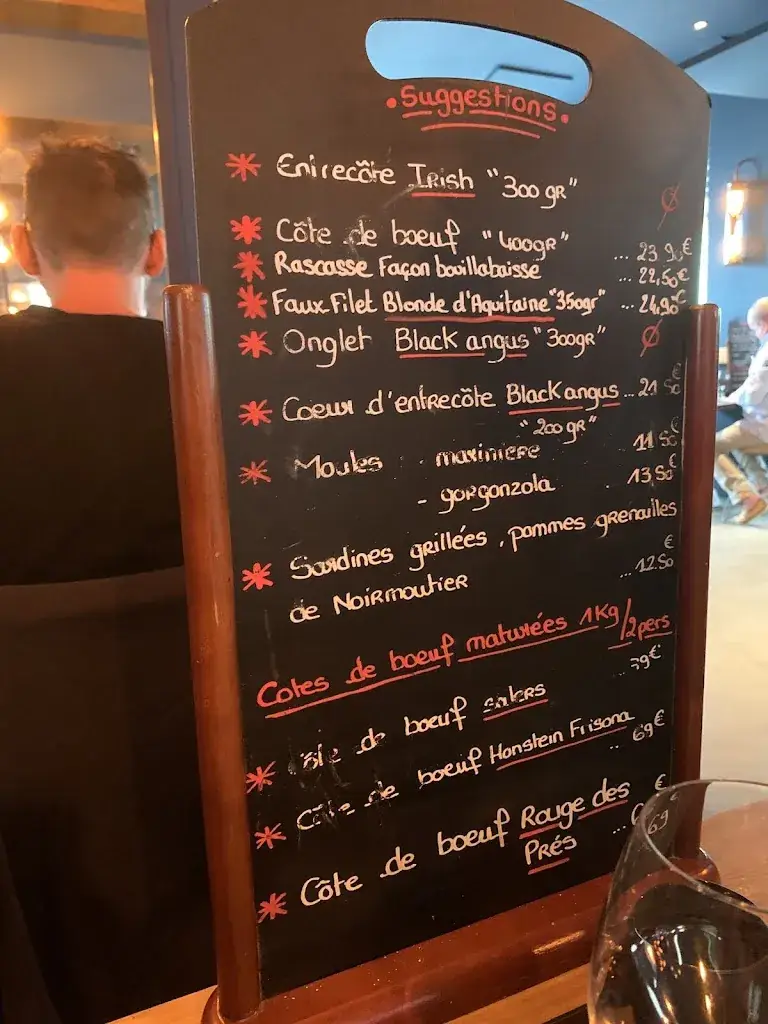 • Suggestions •
* Entrecôte Irish "300 gr" Ø
* Côte de boeuf "400gr" ... 23.90€
* Rascasse Façon bouillabaisse ... 22,50€
* Faux Filet Blonde d'Aquitaine "350gr" ... 24,90€
* Onglet Black angus "300gr" Ø
* Coeur d'entrecôte Black angus ... 21.50€
"200gr"
* Moules - marinière 11.50€
- gorgonzola . 13.50€
* Sardines grillées, pommes grenailles
de Noirmoutier ... 12.50€
Cotes de boeuf maturées 1Kg/2pers
* Côte de boeuf Salers ... 79€
* Côte de boeuf Honstein Frisona .. 69€
* Côte de boeuf Rouge des ... 69€
Prés